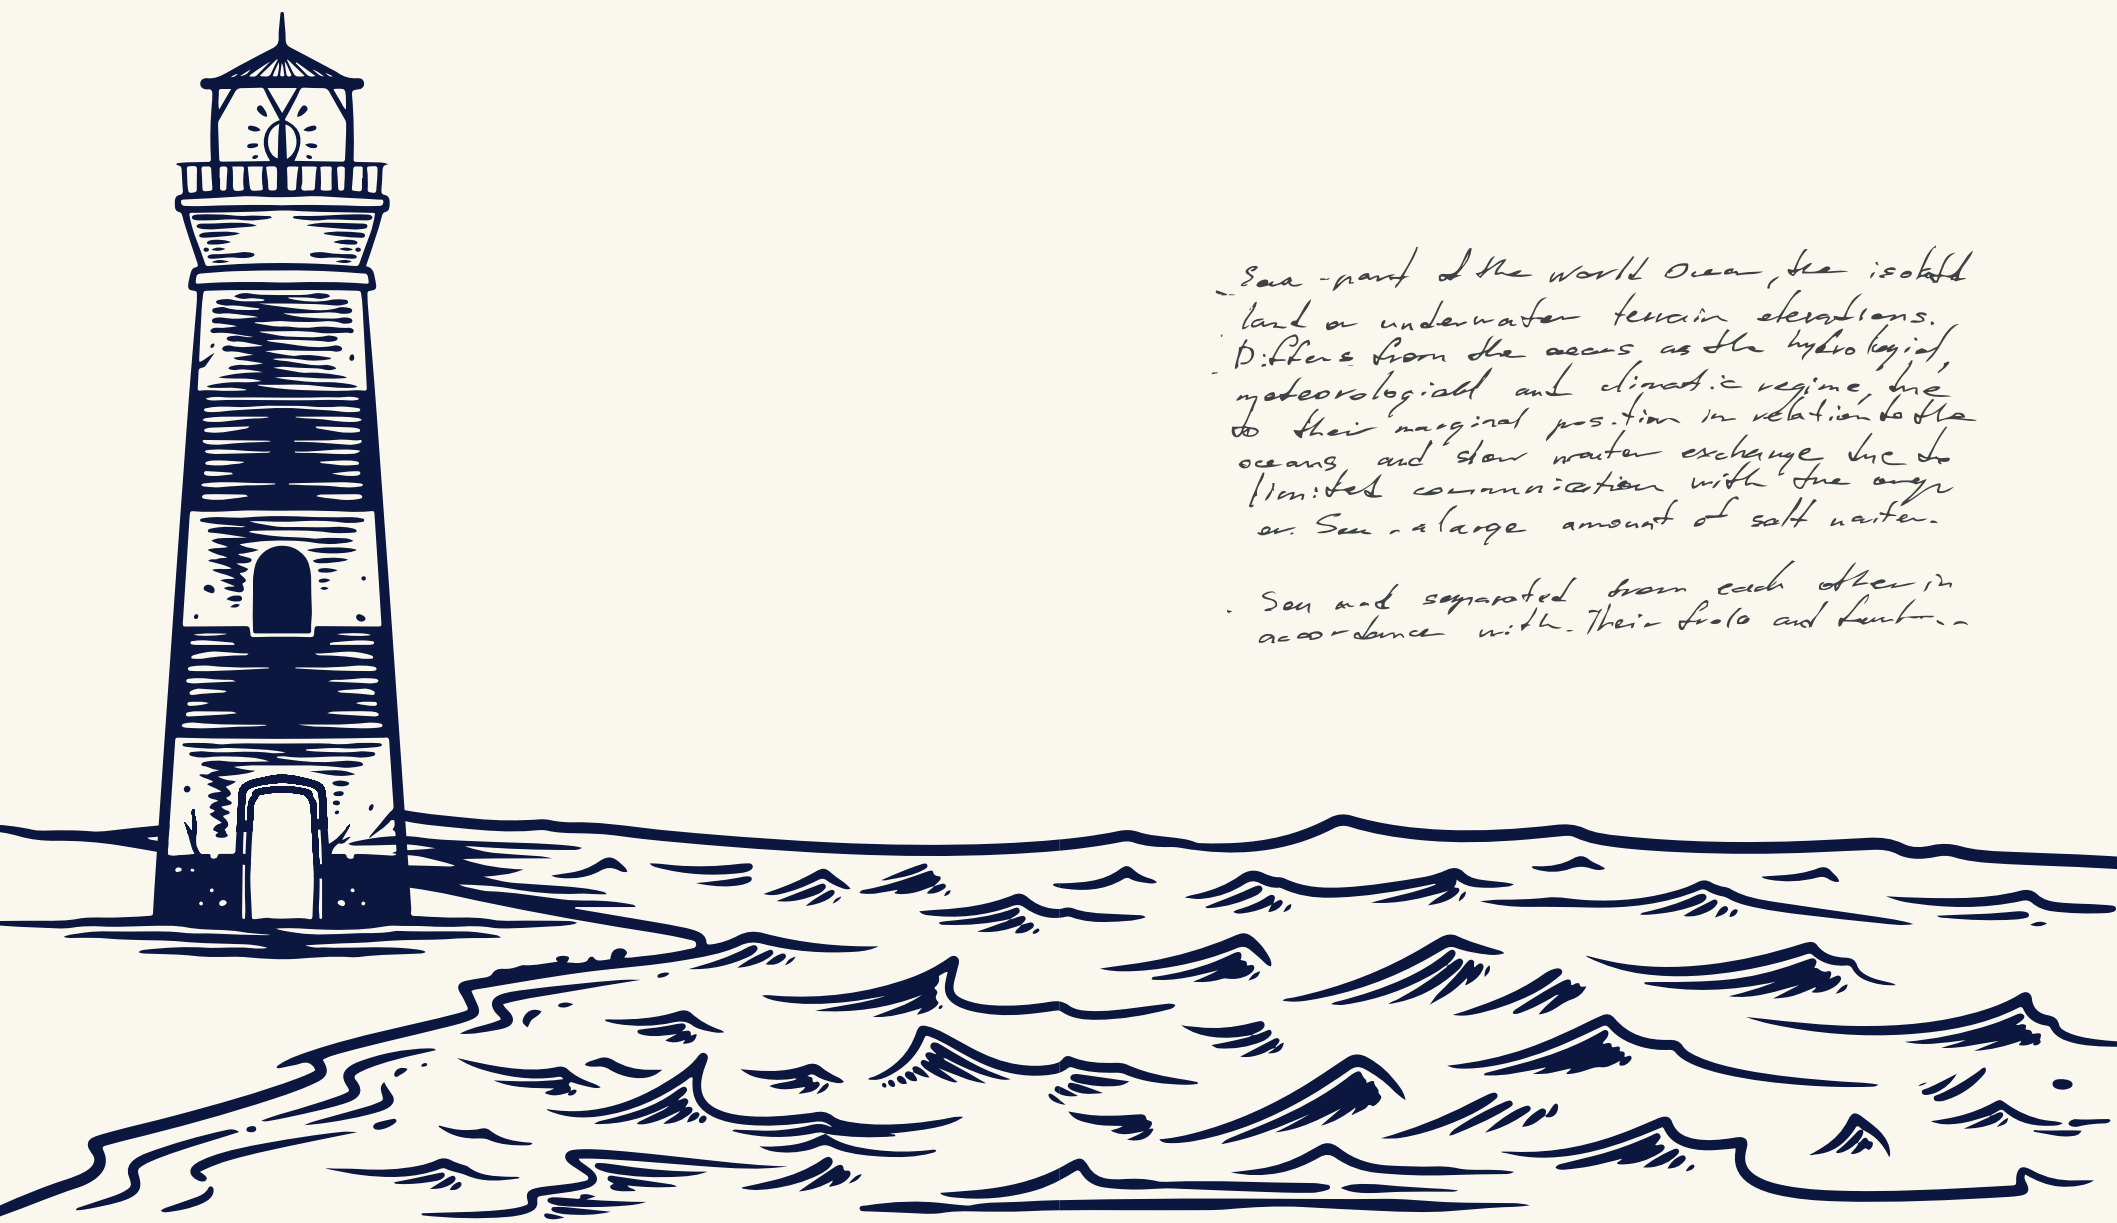 Sea - part of the World Ocean, the isolated
land or underwater terrain elevations.
Differs from the oceans as the hydrological,
meteorological and climatic regime, due
to their marginal position in relation to the
oceans and slow water exchange due to
limited communication with the
Sea - a large amount of salt water.
Sea and separated from each other in
accordance with. Their and